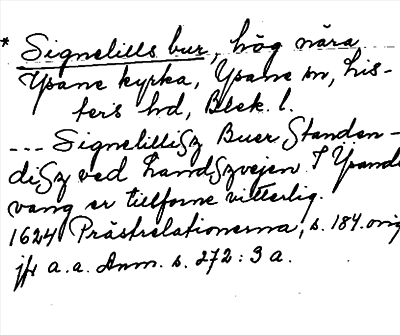 * Signelills bur, hög nära
Ysane kyrka, Ysane sn, Lis-
ters hd, Blek. l.
--- Signelillisz Buer Standen-
disz ved Landszvejen I Ysande
vang er tilforne vitterlig.
1624 Prästrelationerna, s. 184. orig
jfr a.a. Anm. s. 272 : 3 a.